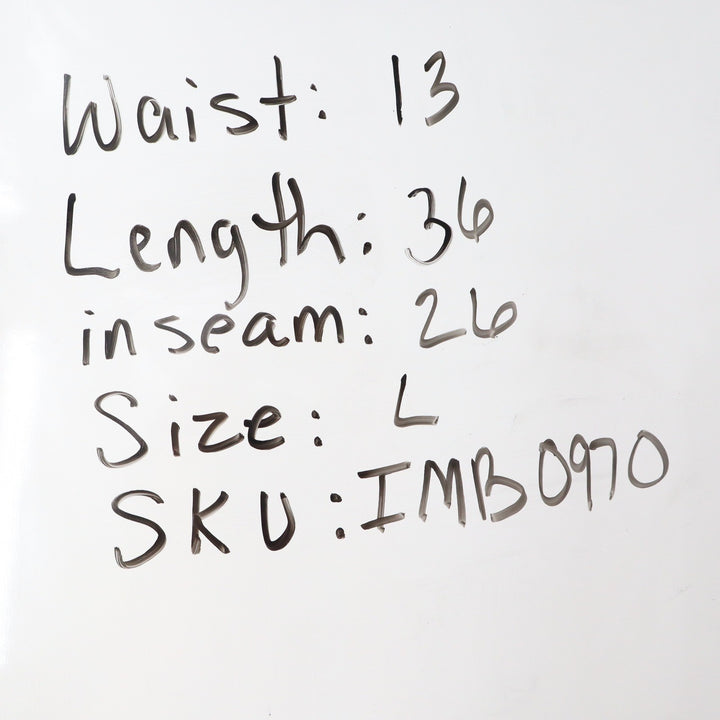 Waist: 13
Length: 36
inseam: 26
Size: L
SKU: IMB0970